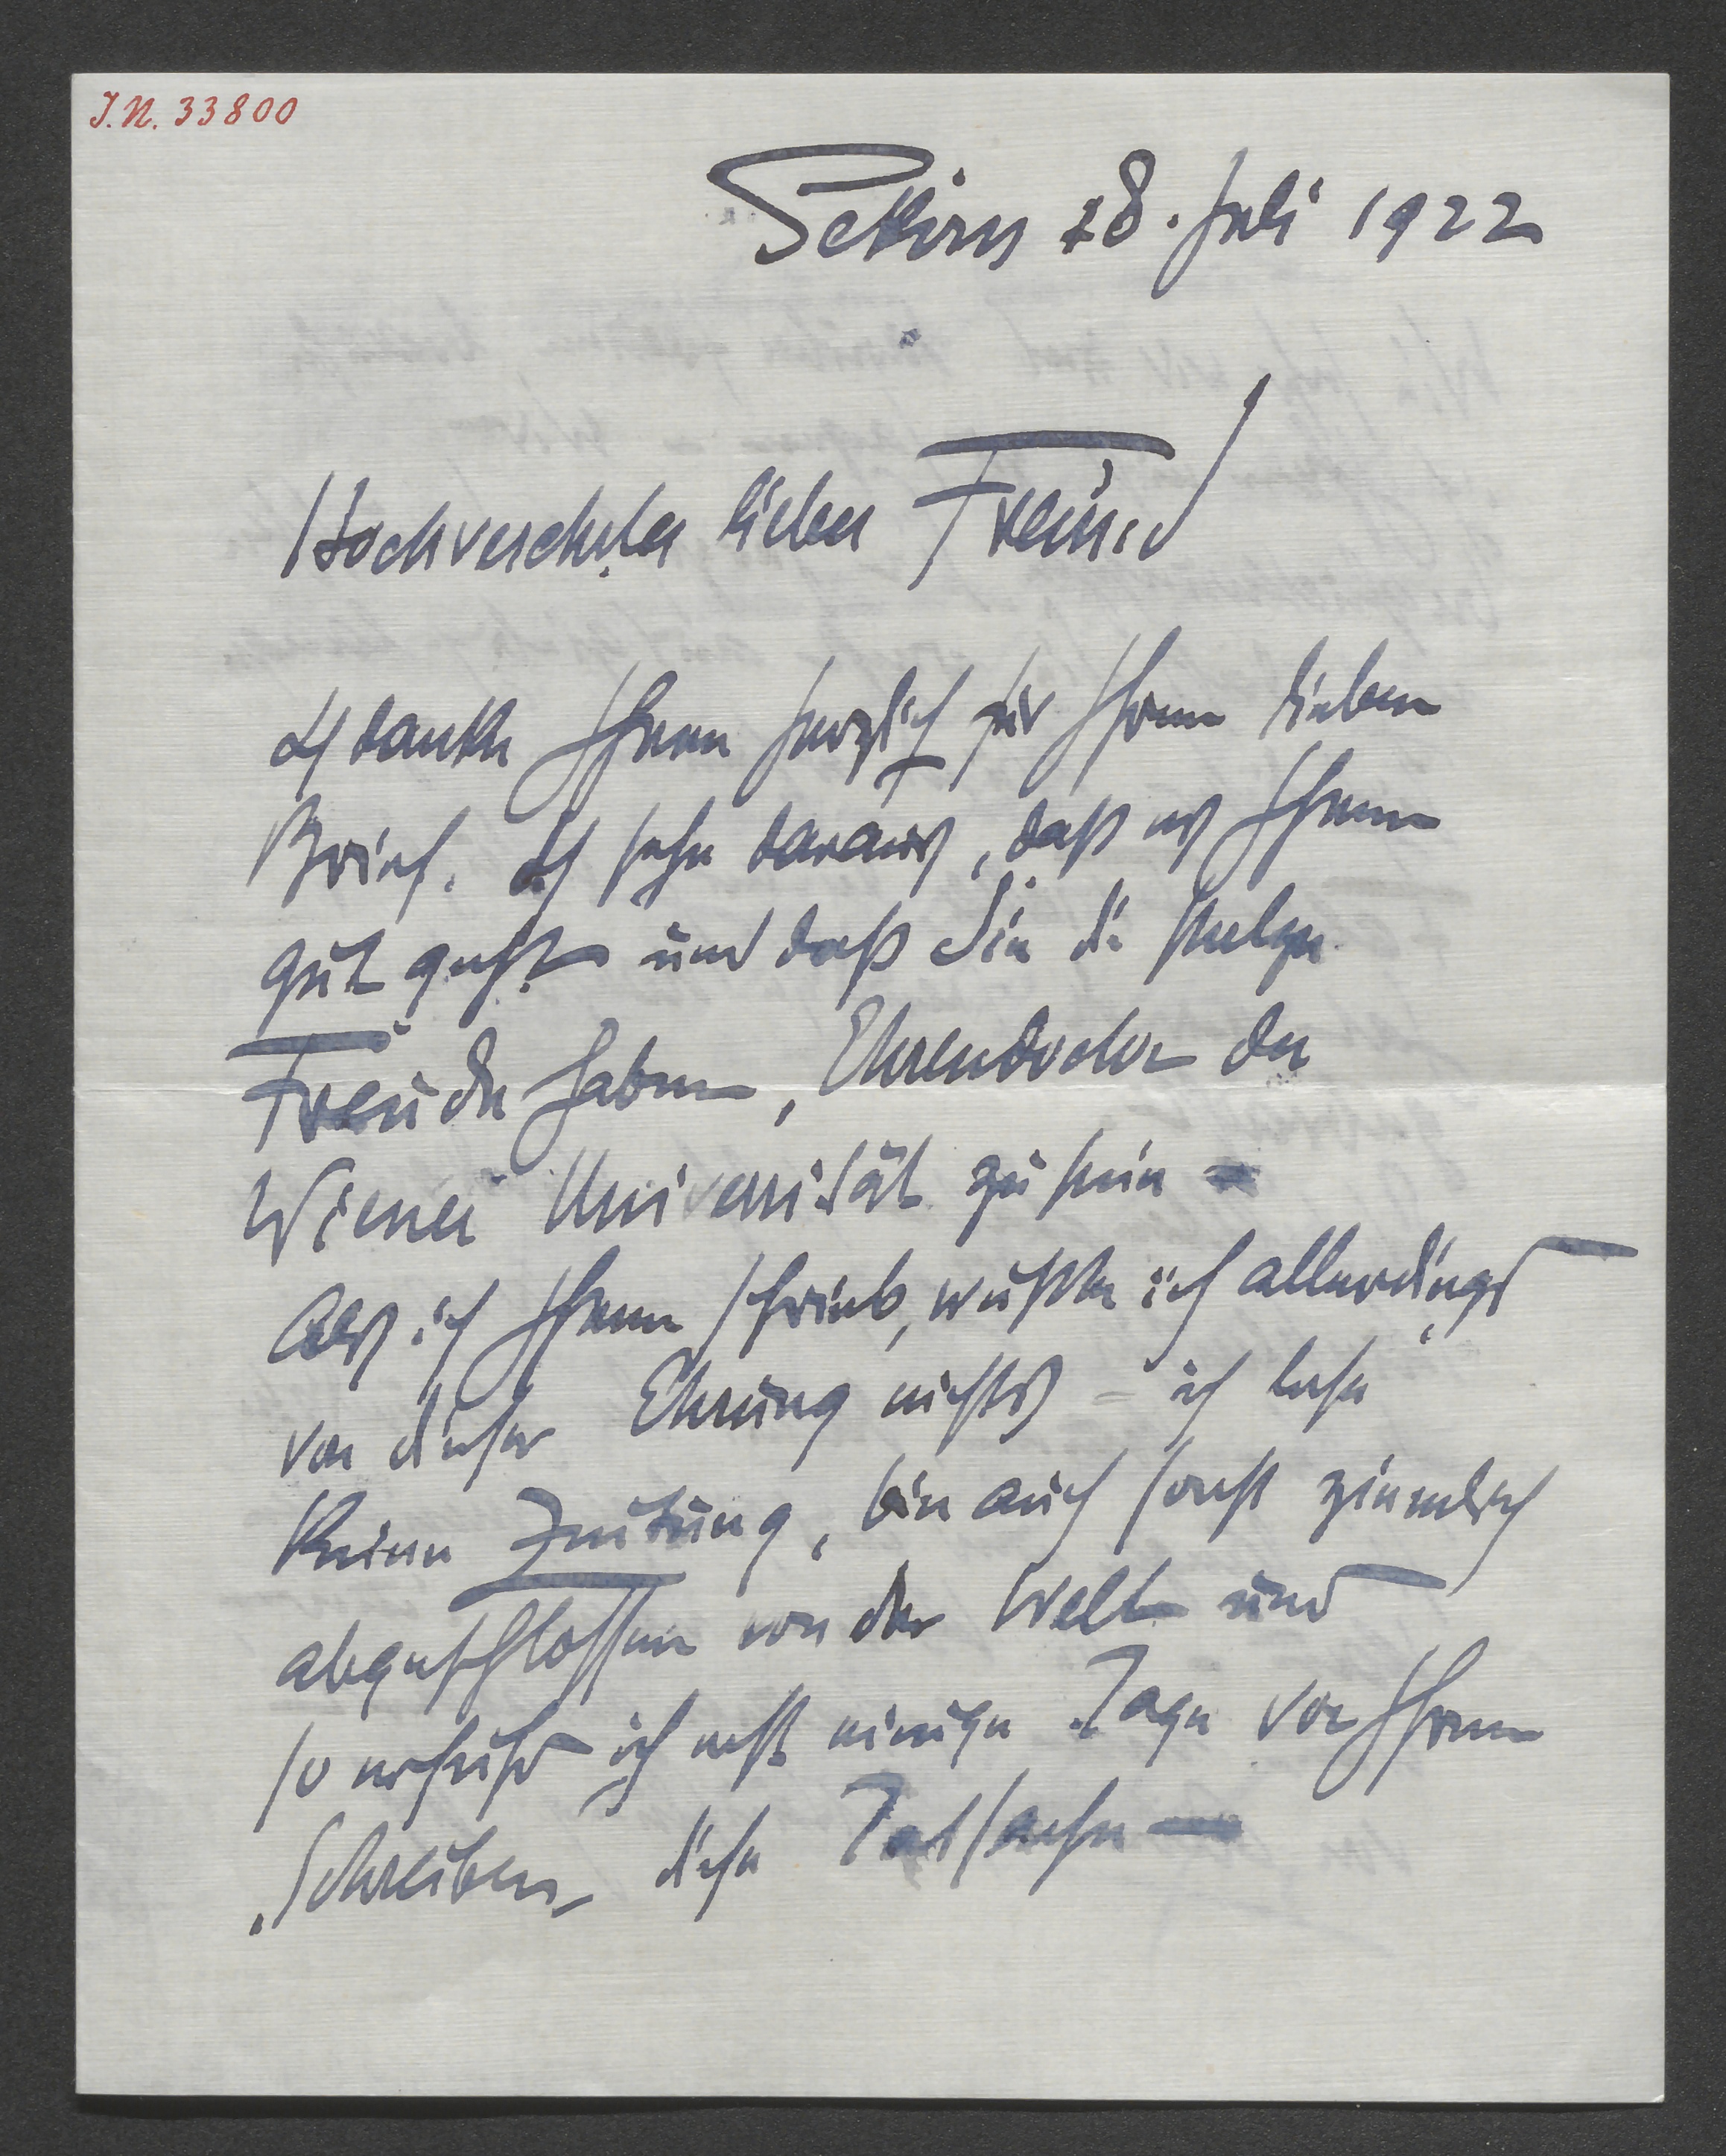 J.N. 33800
Sekirn 28. Juli 1922
Hochverehrter lieber Freund
Ich danke Ihnen herzlich für Ihren lieben
Brief. Ich sehe daraus, daß es Ihnen
gut geht und daß Sie die stolze
Freude haben, Ehrendoctor der
Wiener Universität zu sein –
Als ich Ihnen schrieb, wußte ich allerdings
von dieser Ehrung nichts – ich lese
keine Zeitung, bin auch sonst ziemlich
abgeschlossen von der Welt und
so erfuhr ich erst einige Tage vor Ihrem
Schreiben diese Tatsache –